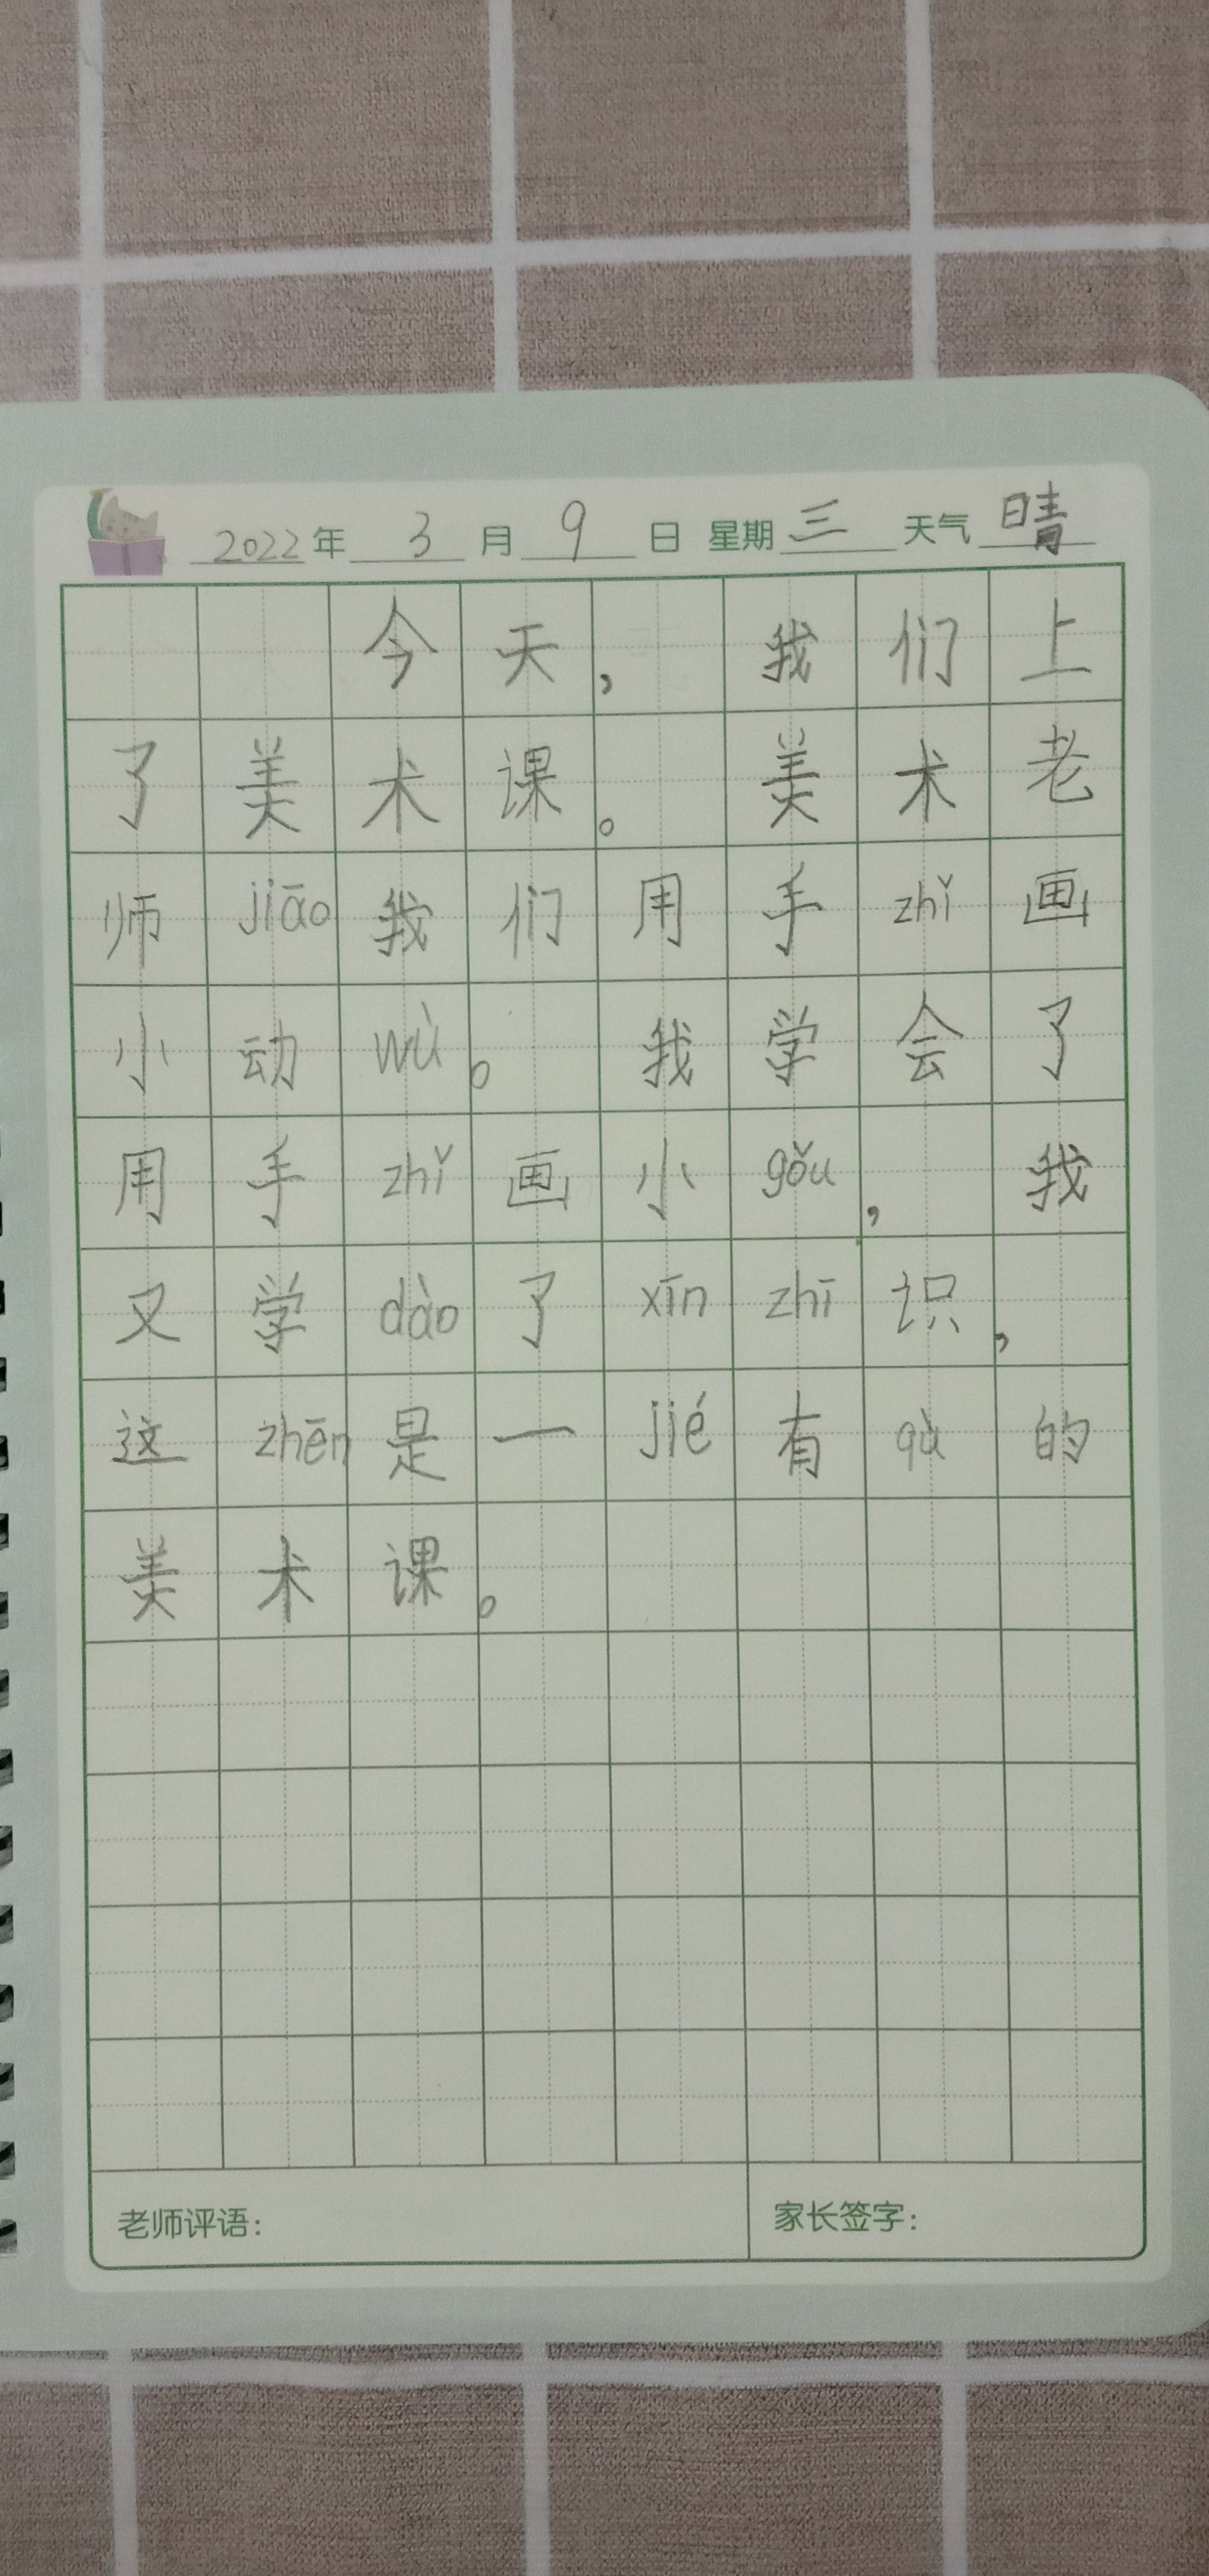 2022年 3 月 9 日 星期三 天气晴
今天，我们上
了美术课。美术老
师jiāo我们用手zhǐ画
小动wù。我学会了
用手zhǐ画小gǒu，我
又学dào了xīn zhī识，
这zhēn是一jié有qù的
美术课。
老师评语： 家长签字：